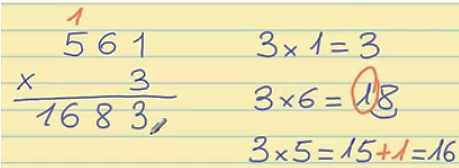 1
561
x 3
1683,
3x1=3
3x6=18
3x5=15+1=16